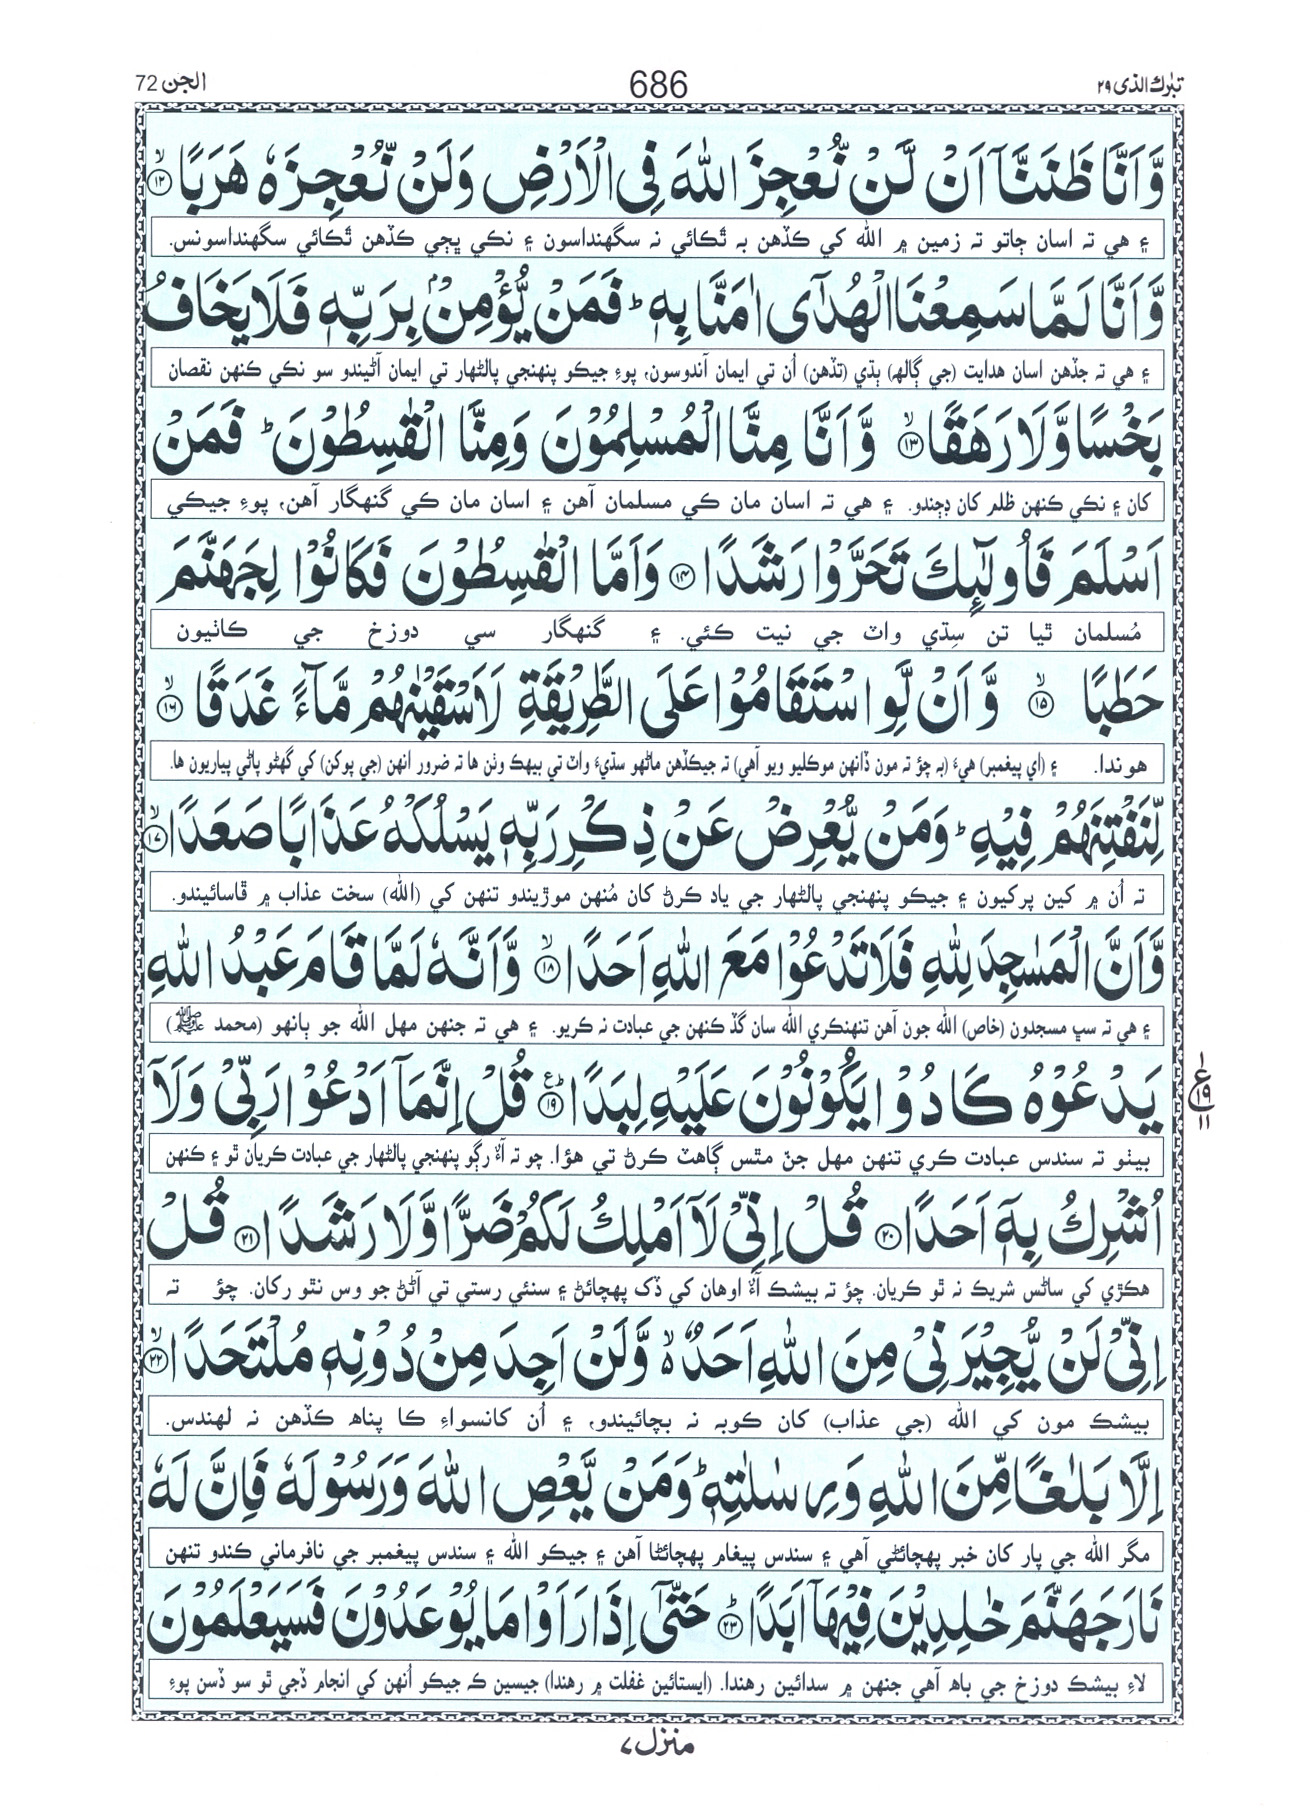 تبٰرك الذى ٢٩ 686 الجن 72
وَّاَنَّا ظَنَنَّاۤ اَنْ لَّنْ نُّعْجِزَ اللّٰهَ فِى الْاَرْضِ وَلَنْ نُّعْجِزَهٗ هَرَبًا ۙ﴿۱۲﴾
۽ هي ته اسان ڄاتو ته زمين ۾ الله کي ڪڏهن به ٿڪائي نہ سگهنداسون ۽ نڪي ڀڄي ڪڏهن ٿڪائي سگهنداسونس.
وَّاَنَّا لَمَّا سَمِعْنَا الْهُدٰۤى اٰمَنَّا بِهٖ ؕ فَمَنْ يُّؤْمِنْۢ بِرَبِّهٖ فَلَا يَخَافُ
۽ هي ته جڏهن اسان هدايت (جي ڳالهه) ٻڌي (تڏهن) اُن تي ايمان آندوسون، پوءِ جيڪو پنهنجي پالڻهار تي ايمان آڻيندو سو نڪي ڪنهن نقصان
بَخْسًا وَّلَا رَهَقًا ۙ﴿۱۳﴾ وَّاَنَّا مِنَّا الْمُسْلِمُوْنَ وَمِنَّا الْقٰسِطُوْنَ ؕ فَمَنْ
کان ۽ نڪي ڪنهن ظلم کان ڊڄندو. ۽ هي ته اسان مان ڪي مسلمان آهن ۽ اسان مان ڪي گنهگار آهن، پوءِ جيڪي
اَسْلَمَ فَاُولٰٓئِكَ تَحَرَّوْا رَشَدًا ﴿۱۴﴾ وَاَمَّا الْقٰسِطُوْنَ فَكَانُوْا لِجَهَنَّمَ
مُسلمان ٿيا تن سِڌي واٽ جي نيت ڪئي. ۽ گنهگار سي دوزخ جي ڪاٺيون
حَطَبًا ۙ﴿۱۵﴾ وَّاَنْ لَّوِ اسْتَقَامُوْا عَلَى الطَّرِيْقَةِ لَاَسْقَيْنٰهُمْ مَّآءً غَدَقًا ۙ﴿۱۶﴾
هوندا. ۽ (اي پيغمبر) هيءُ (به چؤ ته مون ڏانهن موڪليو ويو آهي) ته جيڪڏهن ماڻهو سڌيءَ واٽ تي بيهڪ وٺن ها ته ضرور انهن (جي پوکن) کي گهڻو پاڻي پياريون ها.
لِّنَفْتِنَهُمْ فِيْهِ ؕ وَمَنْ يُّعْرِضْ عَنْ ذِكْرِ رَبِّهٖ يَسْلُكْهُ عَذَابًا صَعَدًا ۙ﴿۱۷﴾
ته اُن ۾ کين پرکيون ۽ جيڪو پنهنجي پالڻهار جي ياد ڪرڻ کان مُنهن موڙيندو تنهن کي (الله) سخت عذاب ۾ ڦاسائيندو.
وَّاَنَّ الْمَسٰجِدَ لِلّٰهِ فَلَا تَدْعُوْا مَعَ اللّٰهِ اَحَدًا ۙ﴿۱۸﴾ وَّاَنَّهٗ لَمَّا قَامَ عَبْدُ اللّٰهِ
۽ هي ته سڀ مسجدون (خاص) الله جون آهن تنهنڪري الله سان گڏ ڪنهن جي عبادت نہ ڪريو. ۽ هي ته جنهن مهل الله جو ٻانهو (محمد ﷺ)
يَدْعُوْهُ كَادُوْا يَكُوْنُوْنَ عَلَيْهِ لِبَدًا ؕ﴿۱۹﴾ قُلْ اِنَّمَاۤ اَدْعُوْا رَبِّىْ وَلَاۤ
بيٺو ته سندس عبادت ڪري تنهن مهل جنّ مٿس ڳاهٽ ڪرڻ تي هؤا. چو ته آءٌ رڳو پنهنجي پالڻهار جي عبادت ڪريان ٿو ۽ ڪنهن
اُشْرِكُ بِهٖۤ اَحَدًا ﴿۲۰﴾ قُلْ اِنِّىْ لَاۤ اَمْلِكُ لَكُمْ ضَرًّا وَّلَا رَشَدًا ﴿۲۱﴾ قُلْ
هڪڙي کي ساڻس شريڪ نہ ٿو ڪريان. چؤ ته بيشڪ آءٌ اوهان کي ڏک پهچائڻ ۽ سنئي رستي تي آڻڻ جو وس نٿو رکان. چؤ ته
اِنِّىْ لَنْ يُّجِيْرَنِىْ مِنَ اللّٰهِ اَحَدٌ ۙ وَّلَنْ اَجِدَ مِنْ دُوْنِهٖ مُلْتَحَدًا ۙ﴿۲۲﴾
بيشڪ مون کي الله (جي عذاب) کان ڪوبه نہ بچائيندو، ۽ اُن کانسواءِ ڪا پناهه ڪڏهن نہ لهندس.
اِلَّا بَلٰغًا مِّنَ اللّٰهِ وَرِسٰلٰتِهٖ ؕ وَمَنْ يَّعْصِ اللّٰهَ وَرَسُوْلَهٗ فَاِنَّ لَهٗ
مگر الله جي پار کان خبر پهچائڻي آهي ۽ سندس پيغام پهچائڻا آهن ۽ جيڪو الله ۽ سندس پيغمبر جي نافرماني ڪندو تنهن
نَارَ جَهَنَّمَ خٰلِدِيْنَ فِيْهَاۤ اَبَدًا ؕ﴿۲۳﴾ حَتّٰۤى اِذَا رَاَوْا مَا يُوْعَدُوْنَ فَسَيَعْلَمُوْنَ
لاءِ بيشڪ دوزخ جي باهه آهي جنهن ۾ سدائين رهندا. (ايستائين غفلت ۾ رهندا) جيسين ڪ جيڪو اُنهن کي انجام ڏجي ٿو سو ڏسن پوءِ
منزل ٧